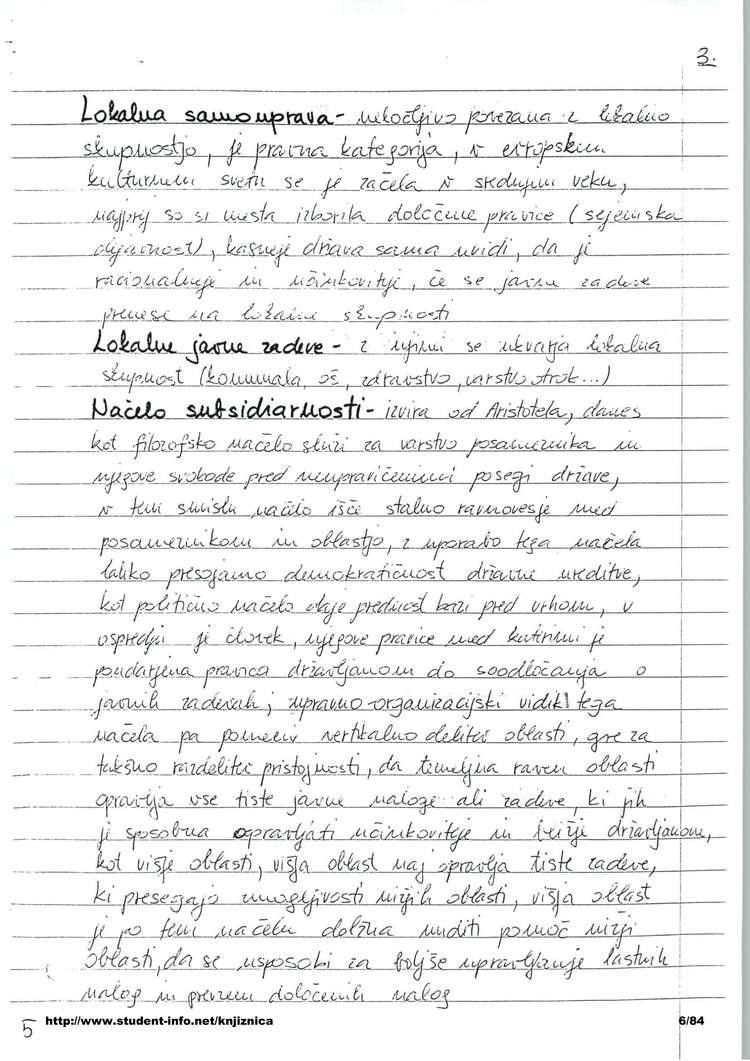 3.
Lokalna samouprava - neločljivo povezana z lokalno
skupnostjo, je pravna kategorija, v evropskem
kulturnem svetu se je začela v srednjem veku,
najprej so si mesta izborila določene pravice (sejemska
dejavnost), kasneje država sama uvidi, da je
racionalneje in učinkovitje, če se javne zadeve
prenese na lokalne skupnosti
Lokalne javne zadeve - z njimi se ukvarja lokalna
skupnost (komunala, oš, zdravstvo, varstvo otrok...)
Načelo subsidiarnosti - izvira od Aristotela, danes
kot filozofsko načelo služi za varstvo posameznika in
njegove svobode pred neupravičenimi posegi države,
v tem smislu načelo išče stalno ravnovesje med
posameznikom in oblastjo, z uporabo tega načela
lahko presojamo demokratičnost državne ureditve,
kot politično načelo daje prednost bazi pred vrhom, v
ospredju je človek, njegove pravice med katerimi je
poudarjena pravica državljanom do soodločanja o
javnih zadevah; upravno-organizacijski vidik tega
načela pa pomeni vertikalno delitev oblasti, gre za
takšno razdelitev pristojnosti, da temeljna raven oblasti
opravlja vse tiste javne naloge ali zadeve, ki jih
je sposobna opravljati učinkoviteje in bližje državljanom,
kot višje oblasti, višja oblast naj opravlja tiste zadeve,
ki presegajo zmogljivosti nižjih oblasti, višja oblast
je po tem načelu dolžna nuditi pomoč nižji
oblasti, da se usposobi za boljše upravljanje lastnih
nalog in prevzem določenih nalog
5 http://www.student-info.net/knjiznica 6/84